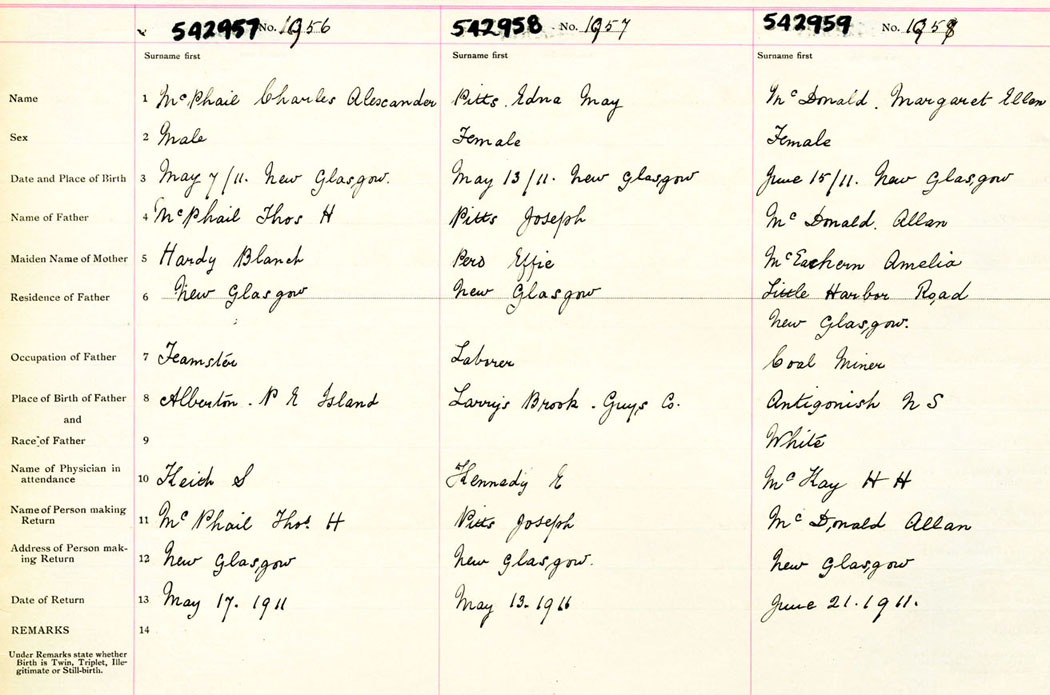 542957 No. 1956 542958 No. 1957 542959 No. 1958
Surname first Surname first Surname first
Name 1 McPhail Charles Alexcander Pitts Edna May McDonald. Margaret Ellen
Sex 2 Male Female Female
Date and Place of Birth 3 May 7/11. New Glasgow. May 13/11. New Glasgow June 15/11. New Glasgow
Name of Father 4 McPhail Thos H Pitts Joseph McDonald. Allan
Maiden Name of Mother 5 Hardy Blanch Pero Effie McEachern Amelia
Residence of Father 6 New Glasgow New Glasgow Little Harbor Road
New Glasgow.
Occupation of Father 7 Teamster Laborer Coal Miner
Place of Birth of Father 8 Alberton. P E Island Larry's Brook. Guys Co. Antigonish N S
and
Race of Father 9 White
Name of Physician in
attendance 10 Keith S Kennedy E McKay H H
Name of Person making
Return 11 McPhail Thos. H Pitts Joseph McDonald Allan
Address of Person mak-
ing Return 12 New Glasgow New Glasgow. New Glasgow
Date of Return 13 May 17. 1911 May 13. 1911 June 21. 1911.
REMARKS 14
Under Remarks state whether
Birth is Twin, Triplet, Ille-
gitimate or Still-birth.